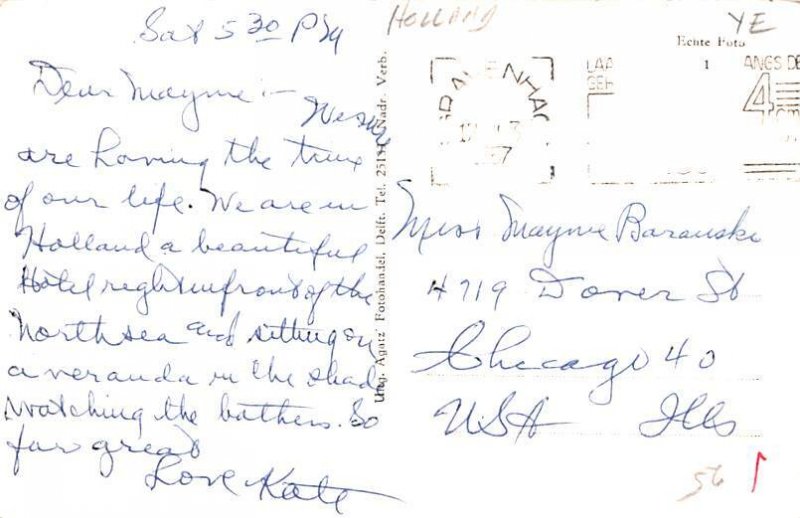 Sat 5 30 PM
Holland
YE
Echte Foto
Dear Mayme :-
We
are having the time
of our life. We are in
Holland a beautiful
Hotel right in front of the
North sea and sitting on
a veranda in the shade
watching the bathers. So
far great
Love Kate
Uitg. Agatz' Fotohandel, Delft. Tel. Nadr. Verb.
GRAVENHAGE
LAA
GEH
1
ANGS DE
4
Miss Mayme Baranski
4719 Dover St
Chicago 40
USA Ills
56